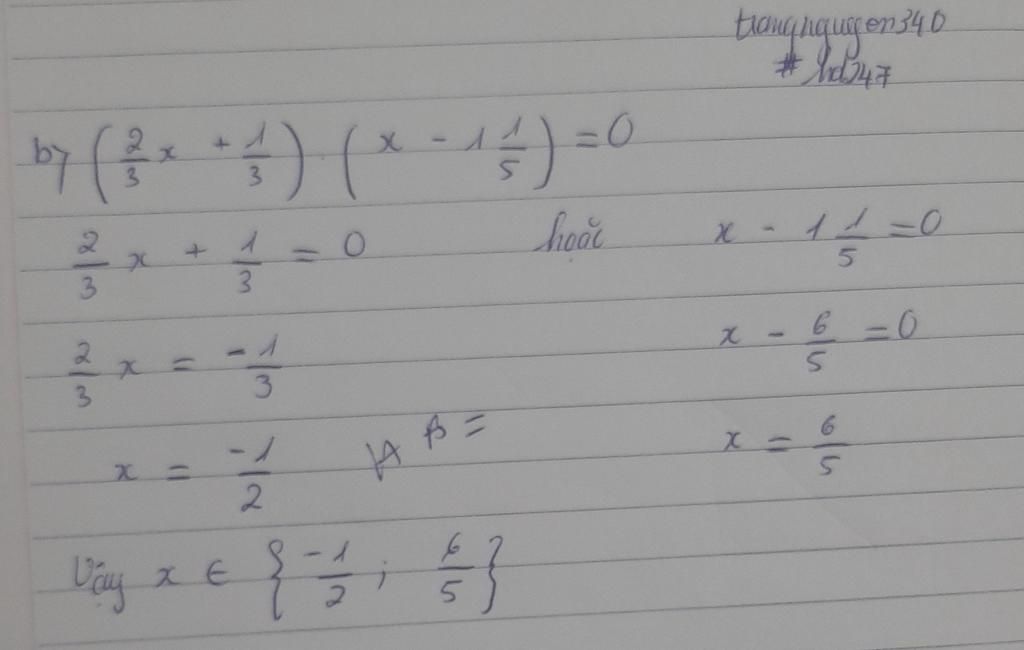 trangnguyen340
# hd247
b) (2/3 x + 1/3) . (x - 1 1/5) = 0
2/3 x + 1/3 = 0 hoặc x - 1 1/5 = 0
2/3 x = -1/3 x - 6/5 = 0
x = -1/2 x = 6/5
Vậy x ∈ {-1/2 ; 6/5}